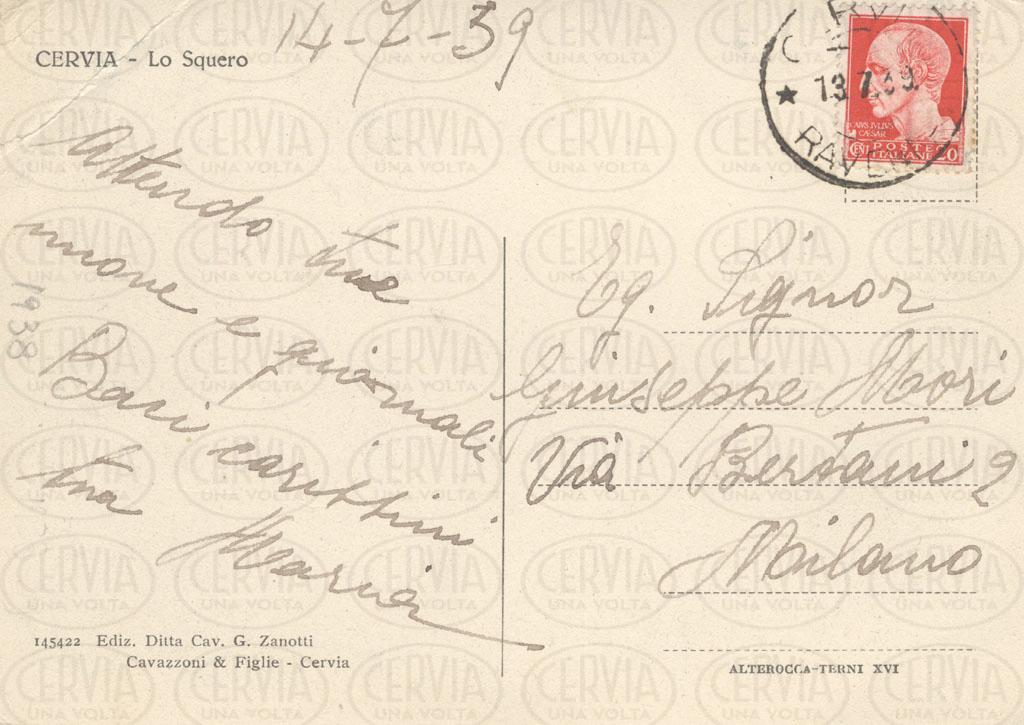 CERVIA - Lo Squero
14-7-39
CERVIA
13.7.39.
RAVENNA
CAIVS.IVLIVS
CAESAR
POSTE
CENT ITALIANE 20
Attendo tue
nuove e giornali
Baci carissimi
tua
Maria
1938
Eg. Signor
Giuseppe Mori
Via Bertani 2
Milano
145422 Ediz. Ditta Cav. G. Zanotti
Cavazzoni & Figlie - Cervia
ALTEROCCA-TERNI XVI
CERVIA
UNA VOLTA